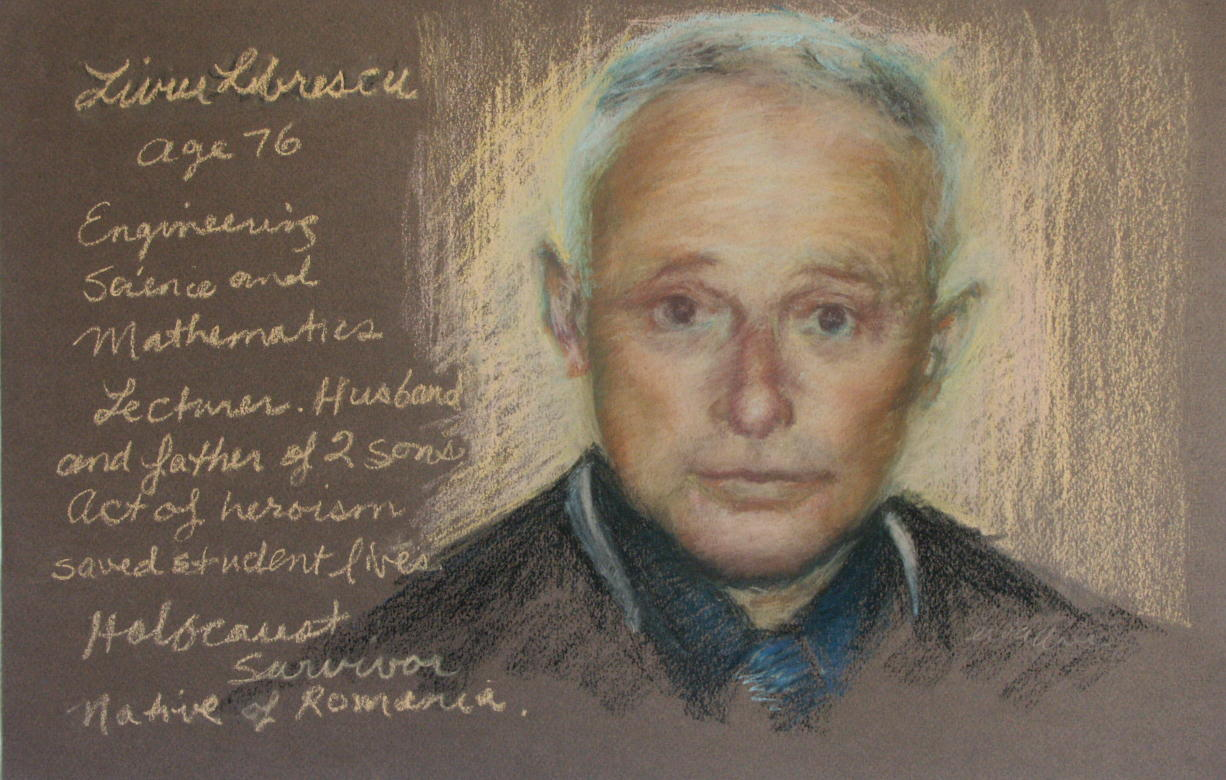 Liviu Librescu
age 76
Engineering
Science and
Mathematics
Lecturer. Husband
and father of 2 sons
Act of heroism
saved student lives.
Holocaust
Survivor
Native of Romania.